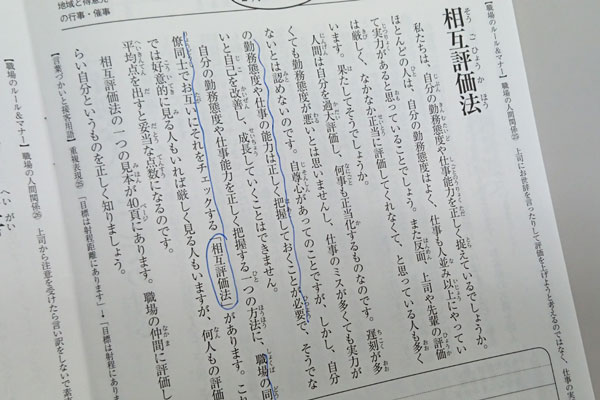 地域と得意先
の行事・催事
【職場のルール＆マナー】【職場の人間関係㉔】 上司にお世辞を言ったりして評価を上げようと考えるのではなく、仕事の実
相互評価法
私たちは、自分の勤務態度や仕事能力を正しく捉えているでしょうか。
ほとんどの人は、自分の勤務態度はよく、仕事も人並み以上にやってい
て実力があると思っていることでしょう。また反面、上司や先輩の評価
は厳しく、なかなか正当に評価してくれなくて、と思っている人も多く
います。果たしてそうでしょうか。
人間は自分を過大評価し、何事も正当化するものなのです。遅刻が多
くても勤務態度が悪いとは思いませんし、仕事のミスが多くても実力が
ないとは認めないのです。自尊心があってのことですが、しかし、自分
の勤務態度や仕事の能力は正しく把握しておくことが必要で、そうでな
いと自己を改善し、成長していくことはできません。
自分の勤務態度や仕事能力を正しく把握する一つの方法に、職場の同
僚同士でお互いにそれをチェックする「相互評価法」があります。これ
では好意的に見る人もいれば厳しく見る人もいますが、何人もの評価
平均点を出すと妥当な点数になるのです。
相互評価法の一つの見本が40頁にあります。職場の仲間に評価し
らい自分というものを正しく知りましょう。
【言葉づかいと接客用語】 重複表現㉕ 「目標は射程距離にあります」→「目標は射程にあります
【職場のルール＆マナー】【職場の人間関係㉕】 上司から注意を受けたら言い訳をしないで素
へいがい